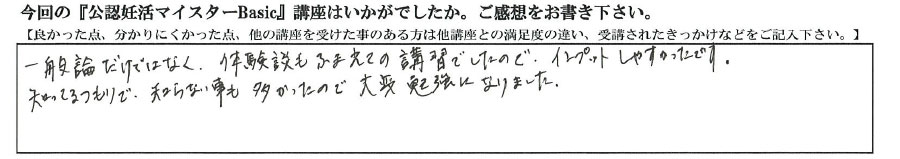 今回の『公認妊活マイスターBasic』講座はいかがでしたか。ご感想をお書き下さい。
【良かった点、分かりにくかった点、他の講座を受けた事のある方は他講座との満足度の違い、受講されたきっかけなどをご記入下さい。】
一般論だけではなく、体験談もふまえての講習でしたので、インプットしやすかったです。
知ってるつもりで、知らない事も多かったので大変勉強になりました。